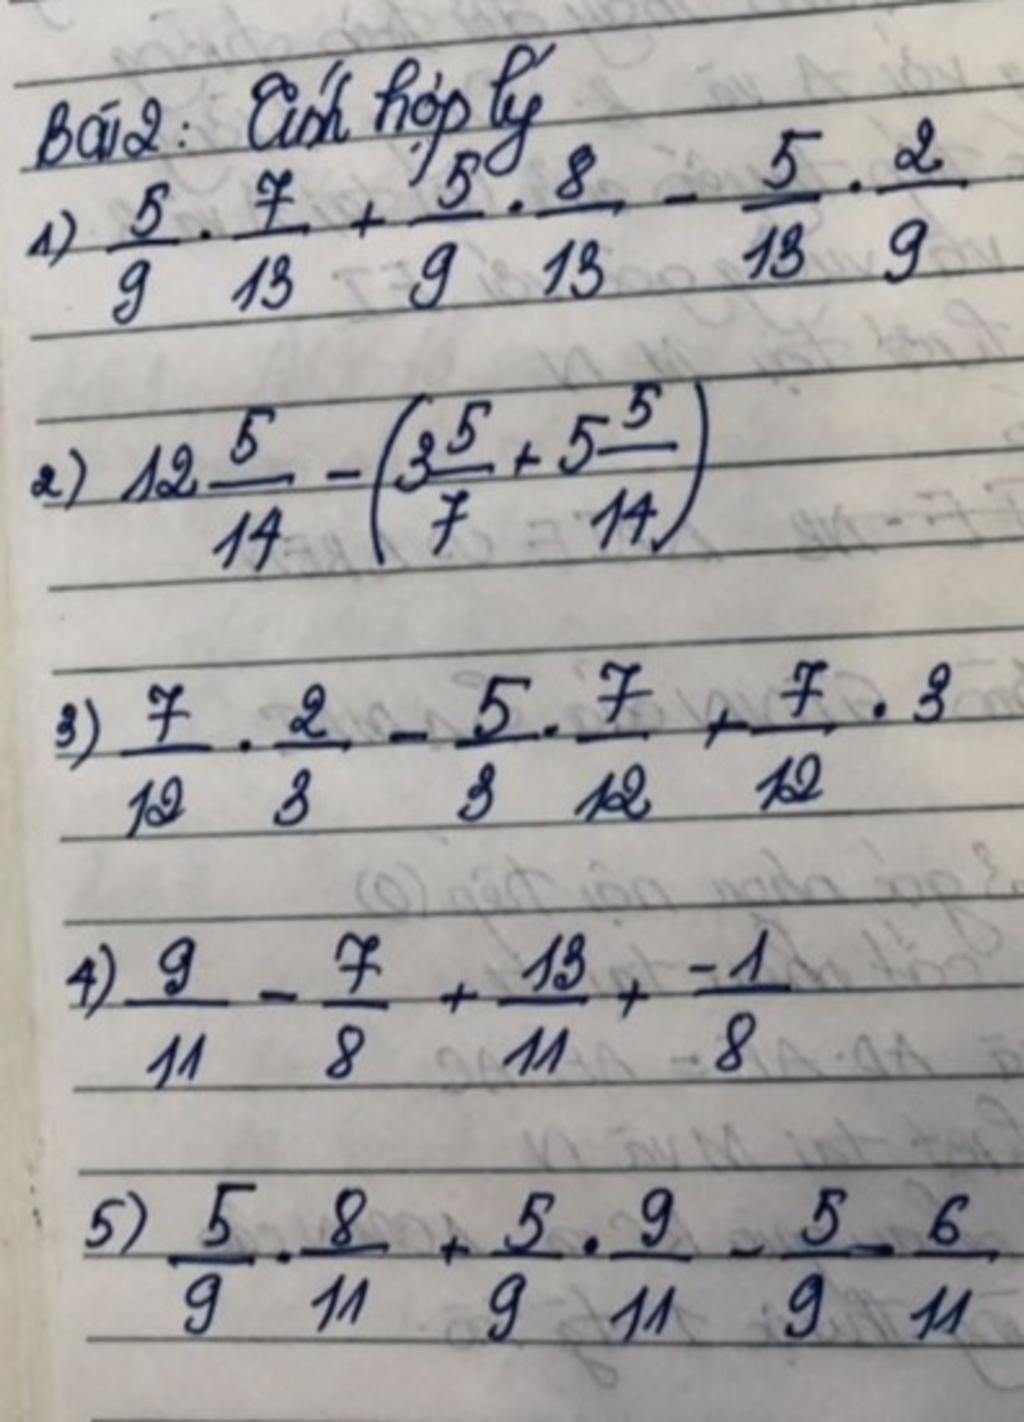 Bài 2: Tính hợp lý
1) 5/9 . 7/13 + 5/9 . 8/13 - 5/13 . 2/9
2) 12 5/14 - (3 5/7 + 5 5/14)
3) 7/12 . 2/3 - 5/3 . 7/12 + 7/12 . 3
4) 9/11 - 7/8 + 13/11 + -1/8
5) 5/9 . 8/11 + 5/9 . 9/11 - 5/9 . 6/11